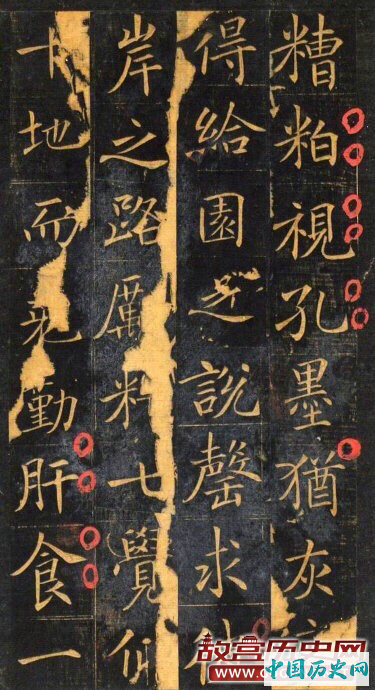 糟粕視孔墨猶灰
得給園之說罄求
岸之路厲料七覺
十地而勤肝食一
故宫历史网
www.
中国历史网